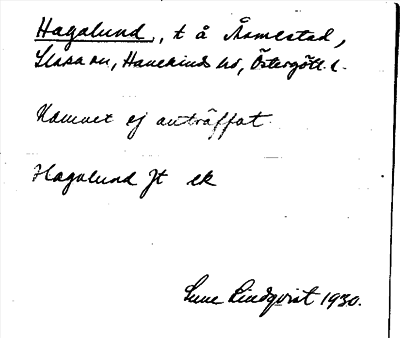 Hagalund, t å Åsmestad,
Slaka sn, Hanekinds hd, Östergötl. l.
Namnet ej anträffat
Hagalund Jt ek
Sune Lindqvist 1930.